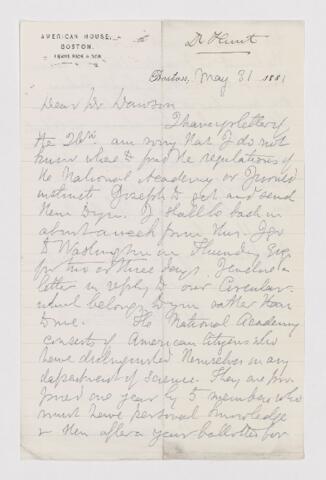 AMERICAN HOUSE,
BOSTON.
LEWIS RICE & SON.
Dr Hunt
Boston, May 31 1881
Dear Dr Dawson
I have yr letter of
the 26th. am sorry that I do not
know where to find the regulations of
the National Academy or I would
instruct Joseph to get and send
them to you. I shall be back in
about a week from this. I go
to Washington on Thursday Eve
for two or three days. I enclose a
letter in reply to our Circular
which belongs to you rather than
to me. The National Academy
consists of American Citizens who
have distinguished themselves in any
department of science. They are pro
posed one year by 5 members who
must have personal knowledge
& then after a year ballotted for